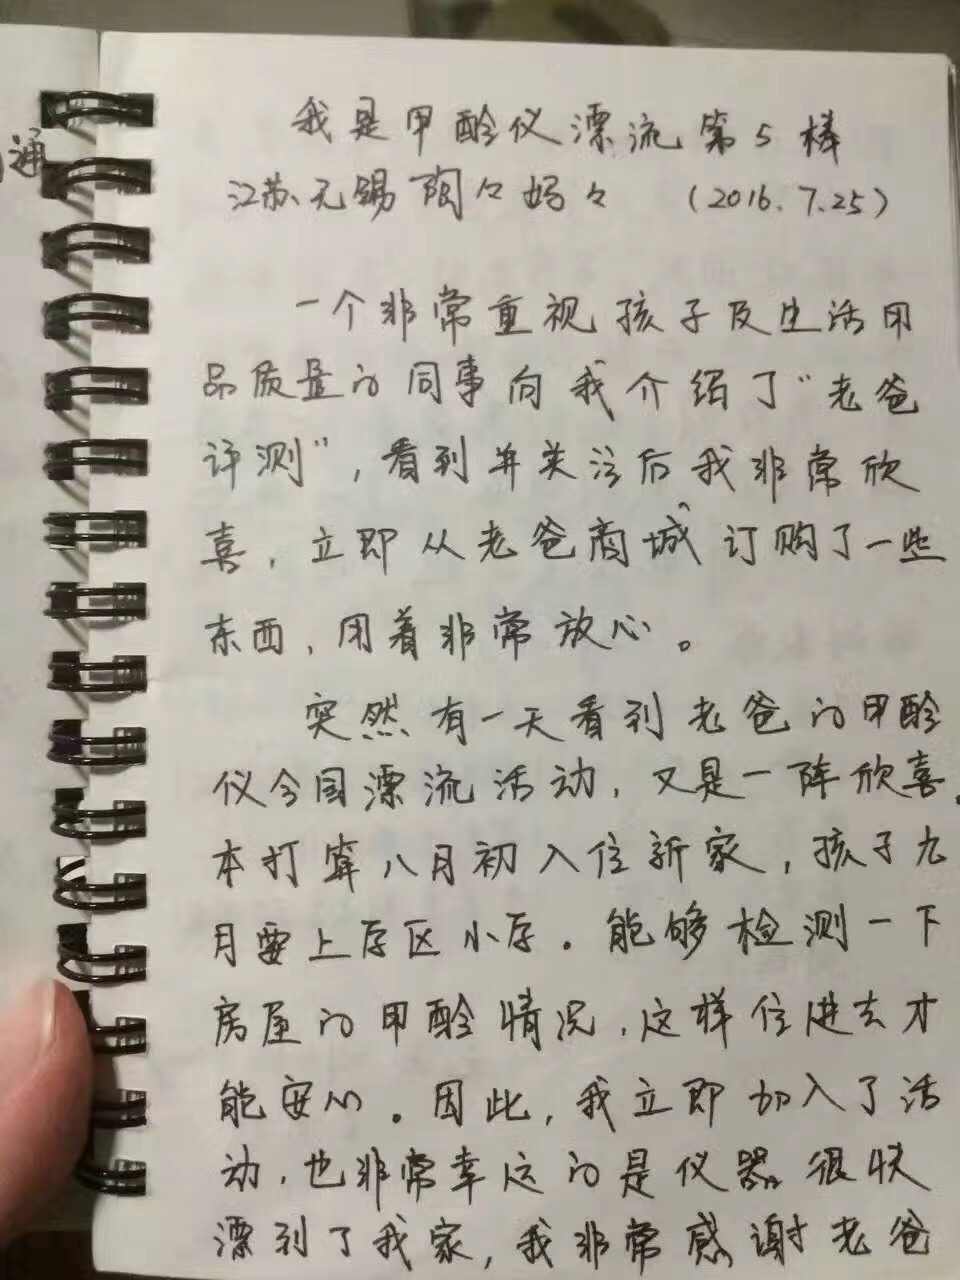 我是甲醛仪漂流第5棒
江苏无锡陶々妈々 (2016.7.25)
一个非常重视孩子及生活用
品质量的同事向我介绍了“老爸
评测”,看到并关注后我非常欣
喜,立即从老爸商城订购了一些
东西,用着非常放心。
突然有一天看到老爸的甲醛
仪全国漂流活动,又是一阵欣喜.
本打算八月初入住新家,孩子九
月要上学区小学。能够检测一下
房屋的甲醛情况,这样住进去才
能安心。因此,我立即加入了活
动,也非常幸运的是仪器很快
漂到了我家,我非常感谢老爸
通